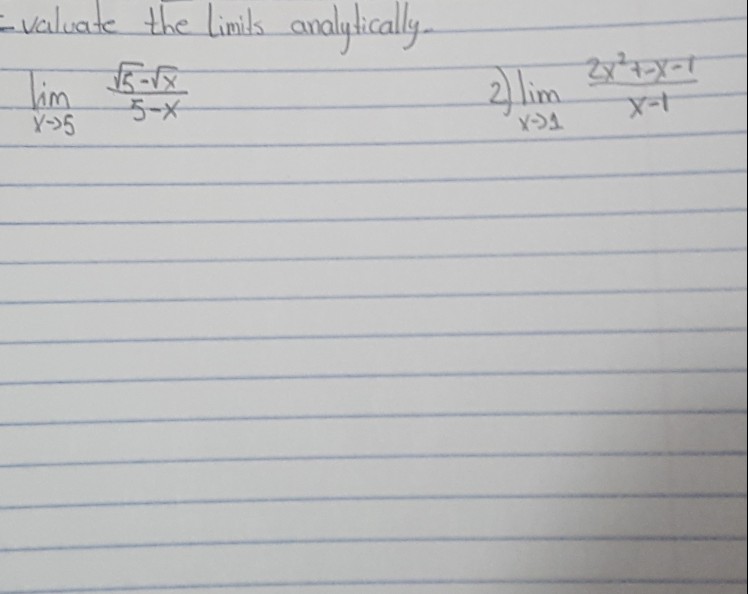 Evaluate the limits analytically.
lim x→5 √5-√x / 5-x
2) lim x→1 2x²+-x-1 / x-1